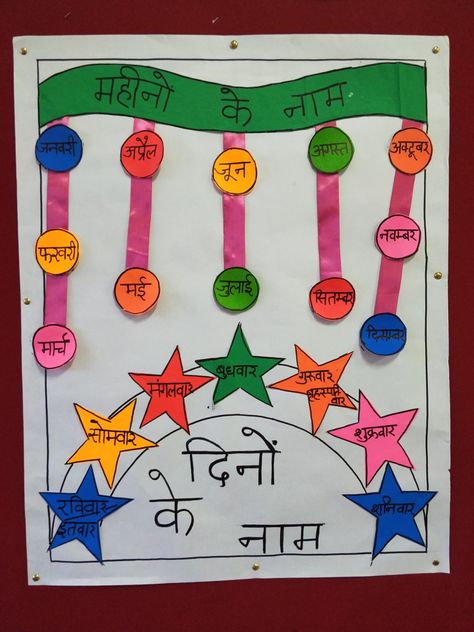 महीनों के नाम
जनवरी
फरवरी
मार्च
अप्रैल
मई
जून
जुलाई
अगस्त
सितम्बर
अक्टूबर
नवम्बर
दिसम्बर
रविवार
इतवार
सोमवार
मंगलवार
बुधवार
गुरूवार
बृहस्पति
वार
शुक्रवार
शनिवार
दिनों
के
नाम